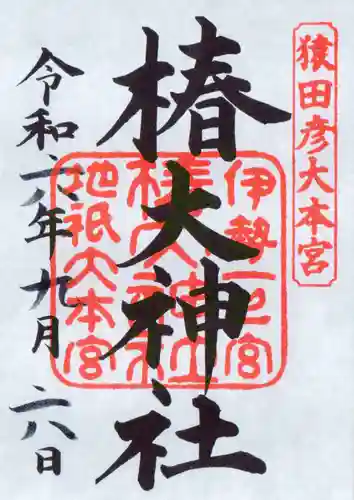 猿田彦大本宮
椿大神社
伊勢一之宮
椿大神社
地祇大本宮
令和六年九月二八日